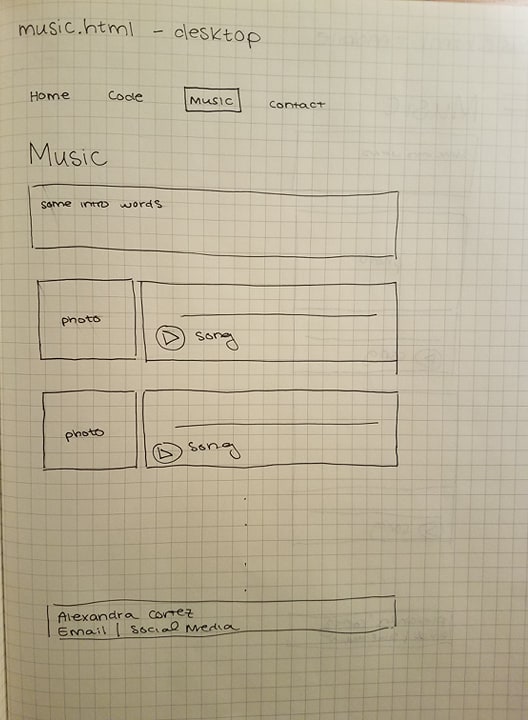 music.html - desktop
Home Code Music Contact
Music
some intro words
photo
song
photo
song
Alexandra Cortez
Email | Social Media